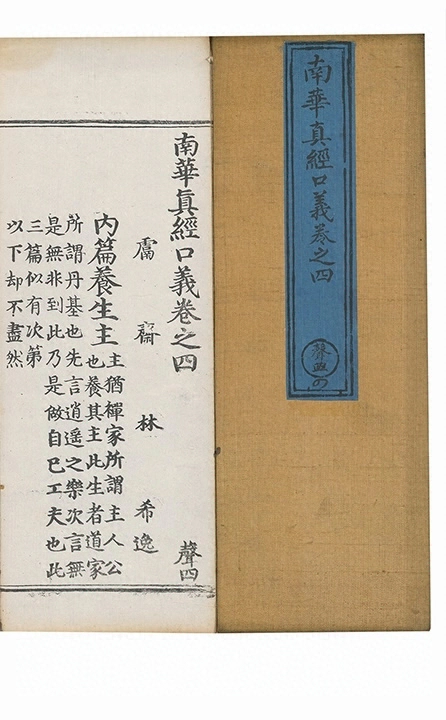 南華真經口義卷之四
南華眞經口義卷之四 聲四
鬳齋 林希逸
內篇養生主 主猶禪家所謂主人公
也養其主此生者道家
所謂丹基也先言逍遥之樂次言無
是無非到此乃是做自已工夫也此
三篇似有次第
以下却不盡然